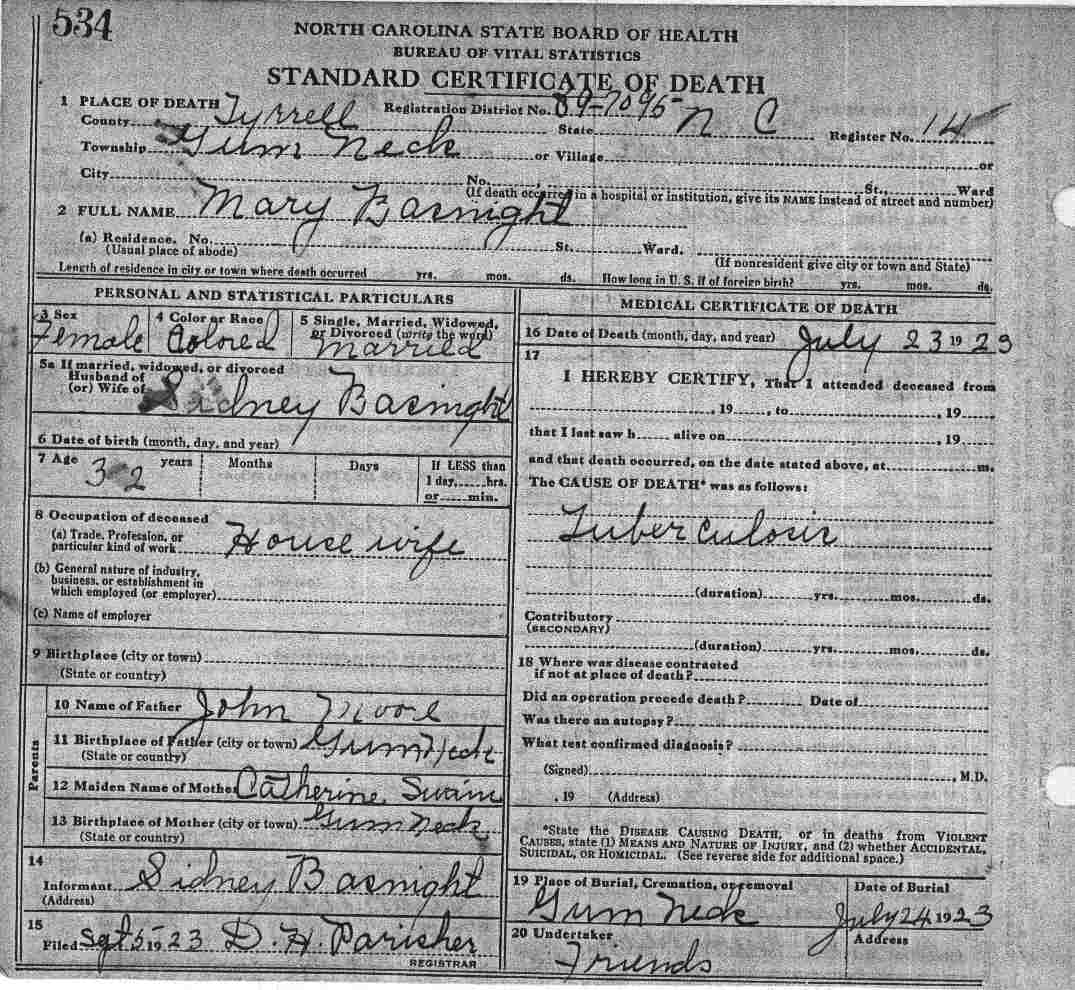 534
NORTH CAROLINA STATE BOARD OF HEALTH
BUREAU OF VITAL STATISTICS
STANDARD CERTIFICATE OF DEATH
1 PLACE OF DEATH
County Tyrrell Registration District No. 89-7095 State N C Register No. 14
Township Gum Neck or Village or
City No. St., Ward
(If death occurred in a hospital or institution, give its NAME instead of street and number)
2 FULL NAME Mary Basnight
(a) Residence. No. St. Ward.
(Usual place of abode) (If nonresident give city or town and State)
Length of residence in city or town where death occurred yrs. mos. ds. How long in U. S. if of foreign birth? yrs. mos. ds.
PERSONAL AND STATISTICAL PARTICULARS
3 Sex 4 Color or Race 5 Single, Married, Widowed, or Divorced (write the word)
Female Colored Married
5a If married, widowed, or divorced
Husband of
(or) Wife of Sidney Basnight
6 Date of birth (month, day, and year)
7 Age 32 years Months Days If LESS than
1 day, hrs.
or min.
8 Occupation of deceased
(a) Trade, Profession, or
particular kind of work House wife
(b) General nature of industry,
business, or establishment in
which employed (or employer)
(c) Name of employer
9 Birthplace (city or town)
(State or country)
Parents
10 Name of Father John Moore
11 Birthplace of Father (city or town) Gum Neck
(State or country)
12 Maiden Name of Mother Catherine Swain
13 Birthplace of Mother (city or town) Gum Neck
(State or country)
14
Informant Sidney Basnight
(Address)
15
Filed Sept 5 1923 D. H. Parisher
REGISTRAR
MEDICAL CERTIFICATE OF DEATH
16 Date of Death (month, day, and year) July 23 1923
17
I HEREBY CERTIFY, That I attended deceased from
, 19 , to , 19
that I last saw h alive on , 19
and that death occurred, on the date stated above, at m.
The CAUSE OF DEATH* was as follows:
Tuberculosis
(duration) yrs. mos. ds.
Contributory
(SECONDARY)
(duration) yrs. mos. ds.
18 Where was disease contracted
if not at place of death?
Did an operation precede death? Date of
Was there an autopsy?
What test confirmed diagnosis?
(Signed) , M.D.
, 19 (Address)
*State the DISEASE CAUSING DEATH, or in deaths from VIOLENT
CAUSES, state (1) MEANS AND NATURE OF INJURY, and (2) whether ACCIDENTAL,
SUICIDAL, OR HOMICIDAL. (See reverse side for additional space.)
19 Place of Burial, Cremation, or removal Date of Burial
Gum Neck July 24 1923
20 Undertaker Address
Friends